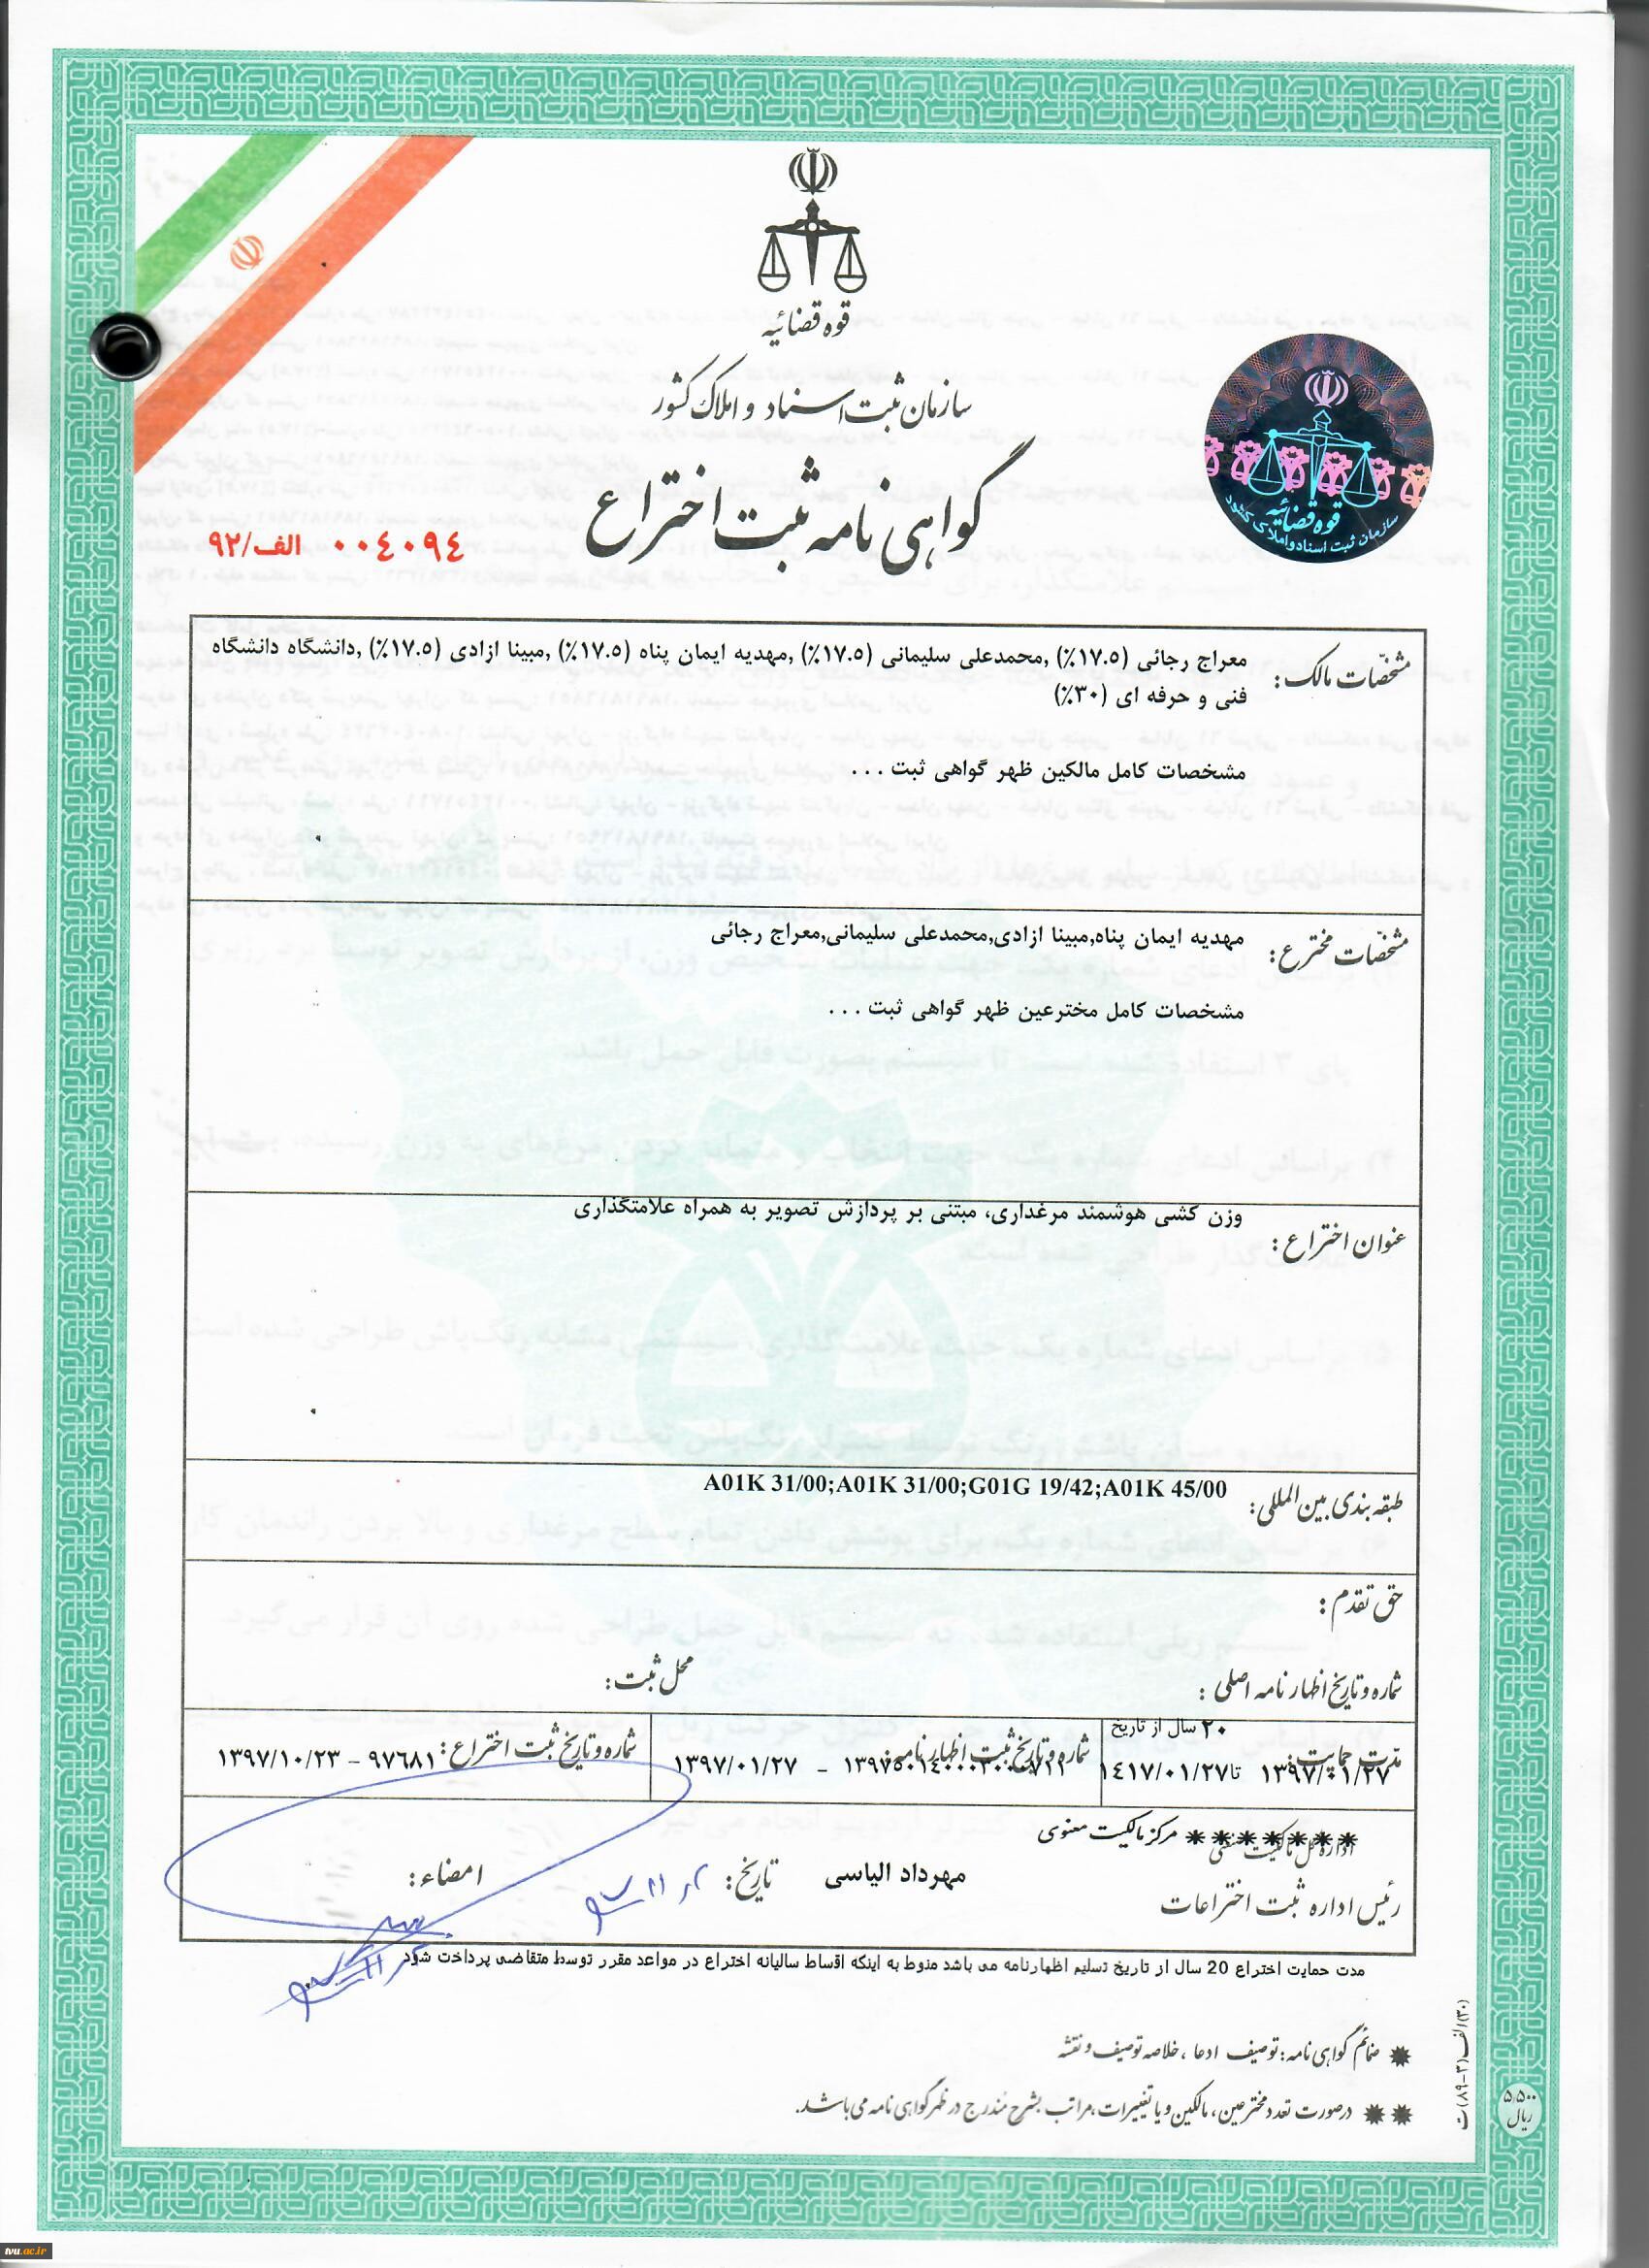 قوه قضائیه
سازمان ثبت اسناد و املاک کشور
گواهی نامه ثبت اختراع
۰۰٤۰۹٤ الف/۹۲
قوه قضائیه
سازمان ثبت اسناد و املاک کشور
مشخصات مالک: معراج رجائی (۱۷.۵٪) ,محمدعلی سلیمانی (۱۷.۵٪) ,مهدیه ایمان پناه (۱۷.۵٪) ,مبینا ازادی (۱۷.۵٪) ,دانشگاه دانشگاه
فنی و حرفه ای (۳۰٪)
مشخصات کامل مالکین ظهر گواهی ثبت ...
مشخصات مخترع: مهدیه ایمان پناه,مبینا ازادی,محمدعلی سلیمانی,معراج رجائی
مشخصات کامل مخترعین ظهر گواهی ثبت ...
عنوان اختراع: وزن کشی هوشمند مرغداری، مبتنی بر پردازش تصویر به همراه علامتگذاری
طبقه بندی بین المللی: A01K 31/00;A01K 31/00;G01G 19/42;A01K 45/00
حق تقدم:
شماره و تاریخ اظهارنامه اصلی: محل ثبت:
مدت حمایت: ۲۰ سال از تاریخ
۱۳۹۷/۰۱/۲۷ تا ۱٤۱۷/۰۱/۲۷
شماره و تاریخ ثبت اظهارنامه:
۱۳۹۷/۰۱/۲۷
شماره و تاریخ ثبت اختراع: ۹۷٦۸۱ - ۱۳۹۷/۱۰/۲۳
اداره کل مالکیت صنعتی ******* مرکز مالکیت معنوی
رئیس اداره ثبت اختراعات مهرداد الیاسی تاریخ: امضاء:
مدت حمایت اختراع 20 سال از تاریخ تسلیم اظهارنامه می باشد منوط به اینکه اقساط سالیانه اختراع در مواعد مقرر توسط متقاضی پرداخت شود
* ضمائم گواهی نامه: توصیف ادعا، خلاصه توصیف و نقشه
** درصورت تعدد مخترعین، مالکین و یا تغییرات، مراتب بشرح مندرج در ظهر گواهی نامه می باشد.
۵,۵۰۰
ریال
tvu.ac.ir